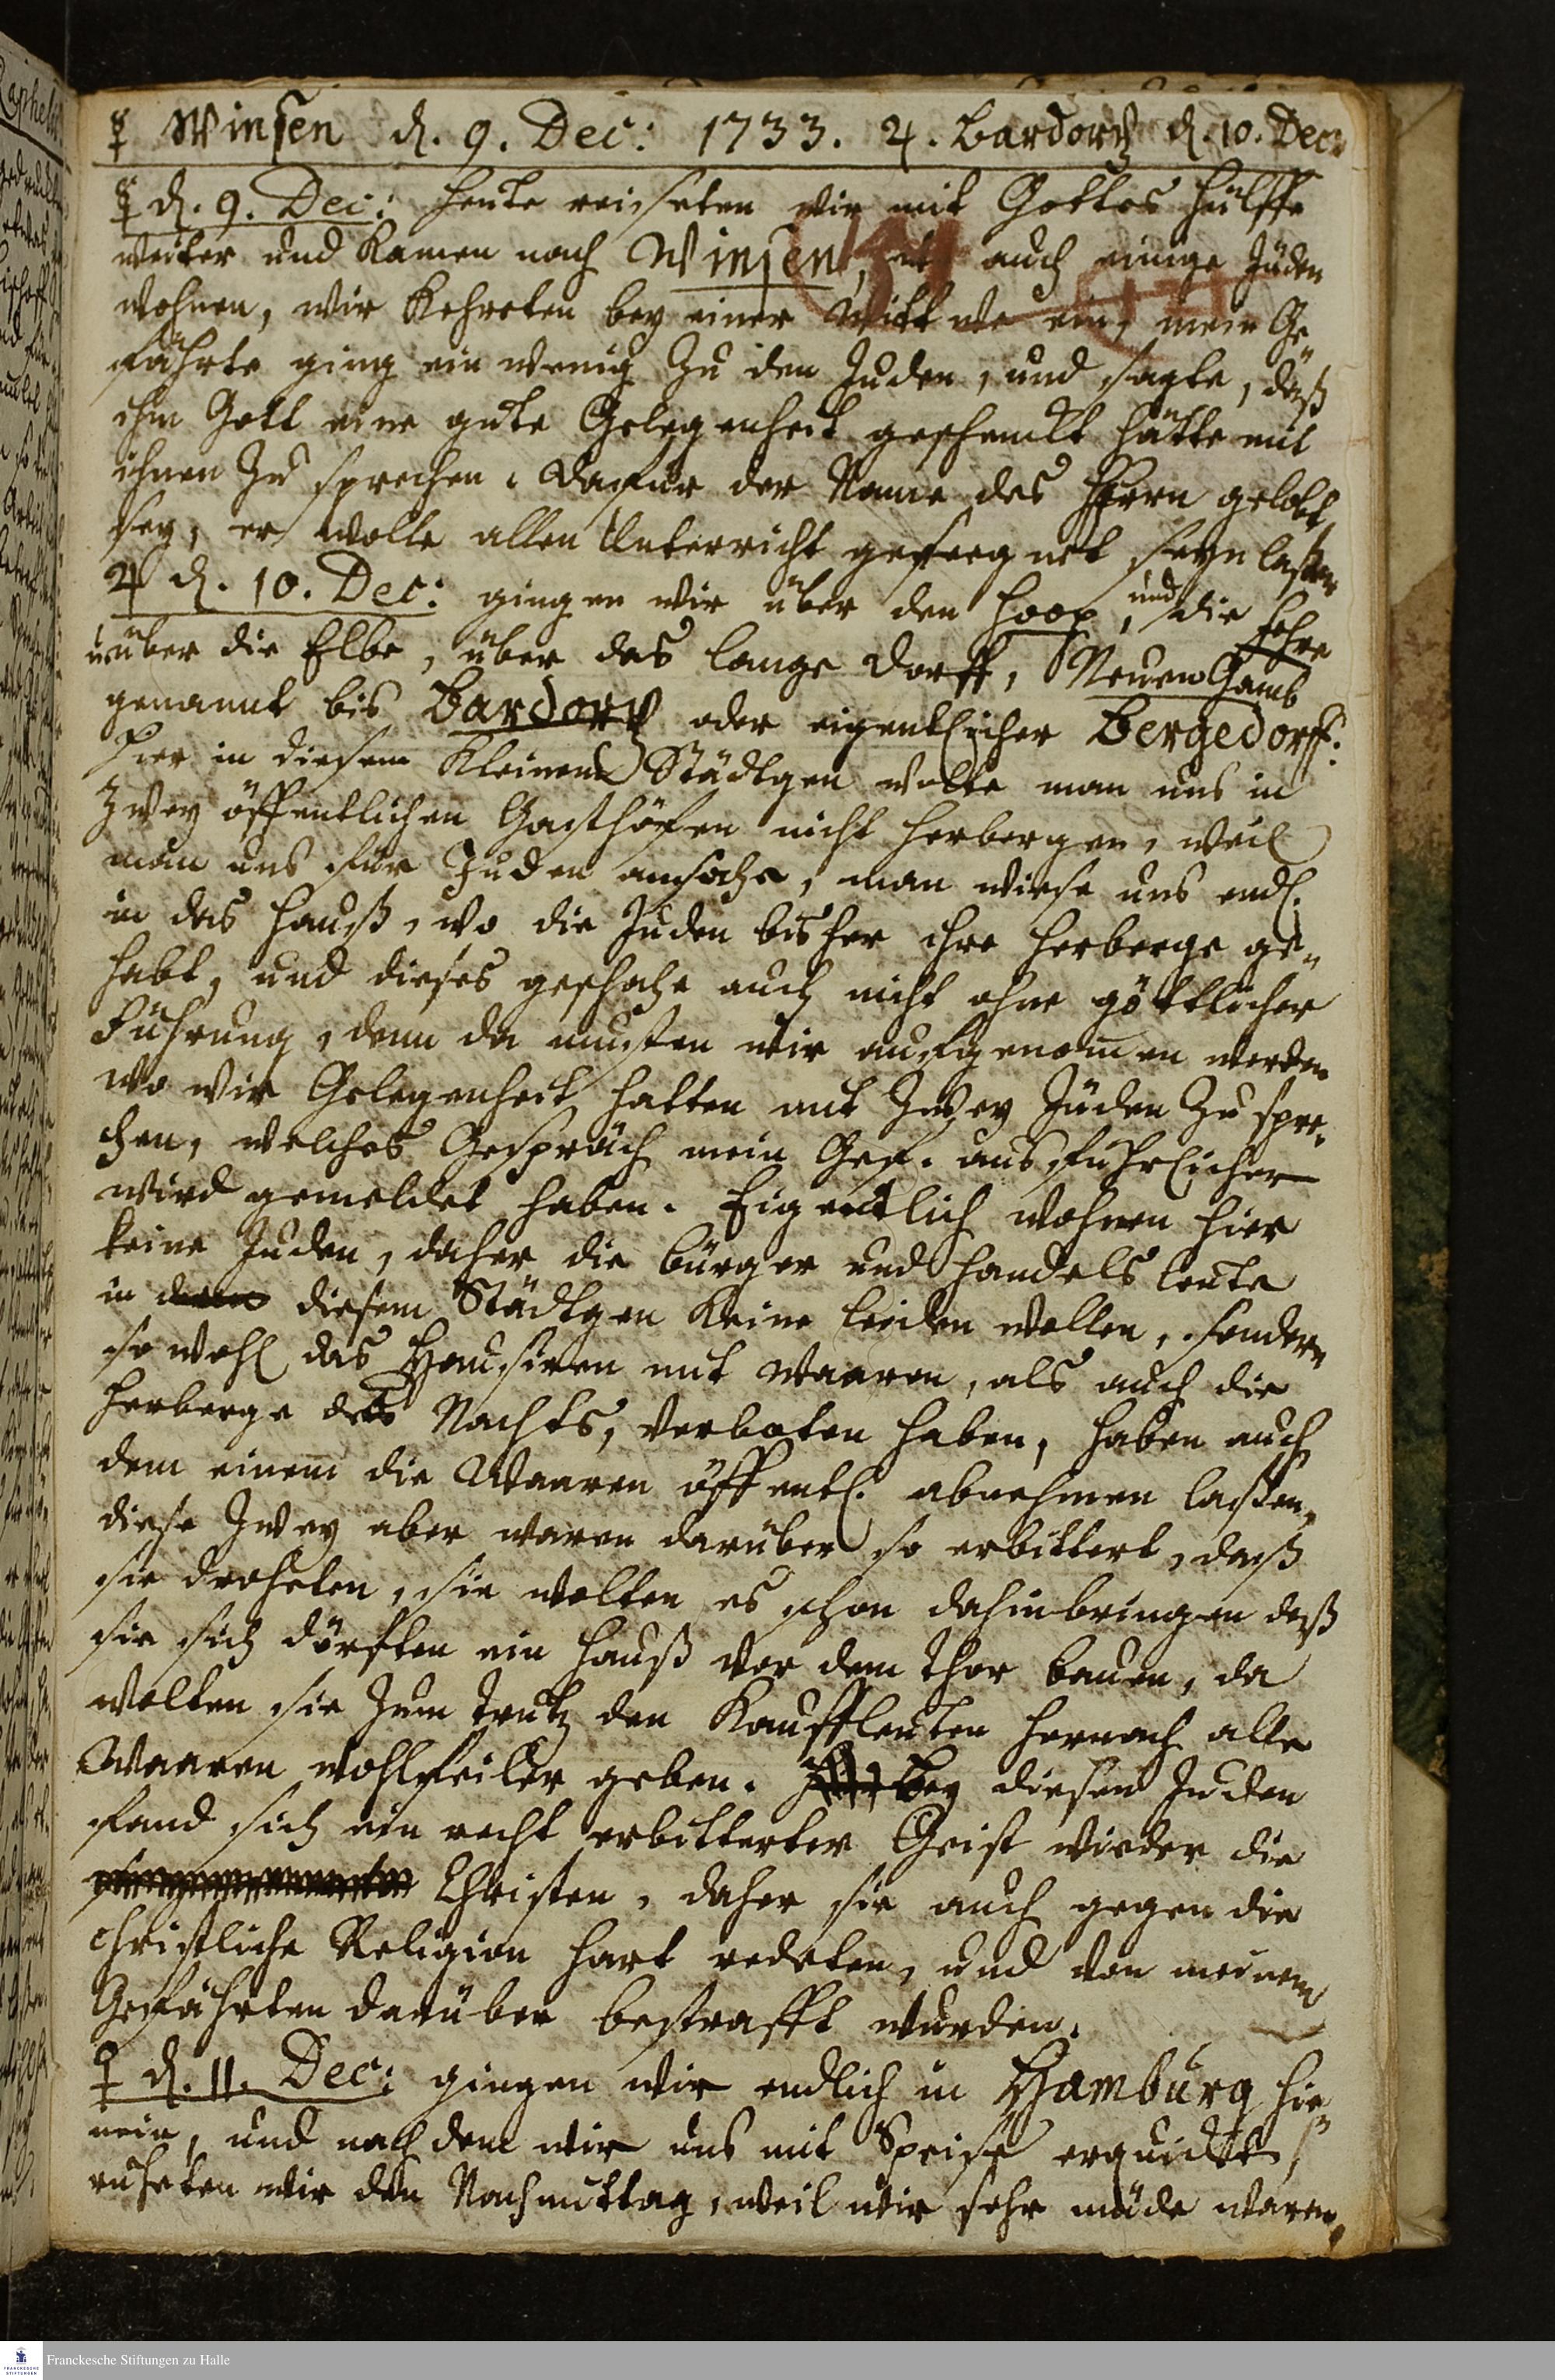 ☿ Winsen d. 9. Dec: 1733. ♃. Bardorff d. 10. Dec:
☿ d. 9. Dec: Heute reiseten wir mit Gottes Hülffe
weiter und kamen nach Winsen, wo auch einige Jüden
wohnen, wir kehreten bey einer Wittwe ein, mein Ge
fährte ging ein wenig zu den Juden, und sagte, daß
ihm Gott eine gute Gelegenheit geschenckt hätte mit
ihnen zu sprechen, dafür der Name des HErrn gelobt
sey, er wolle allen Unterricht gesegnet seyn laßen
♃ d. 10. Dec: gingen wir über den Hoop, und die Fehre
u. über die Elbe, über das lange Dorff, Neuen Gamb
genannt bis Bardorff oder eigentlicher Bergedorff.
Hier in diesem kleinen Städtgen wolte man uns in
zwey öffentlichen Gasthöfen nicht herbergen, weil
man uns für Juden ansahe, man wiese uns endl.
in das Hauß, wo die Juden bisher ihre Herberge ge„
habt, und dieses geschahe auch nicht ohne göttlicher
Führung, denn da musten wir aufgenomen werden
wo wir Gelegenheit hatten mit zwey Jüden zu spre„
chen, welches Gespräch mein Gef. ausführlicher
wird gemeldet haben. Eigentlich wohnen hier
keine Juden, daher die Bürger und Handels leute
in diesem Städtgen keine leiden wollen, sondern
so wohl das Hausiren mit Waaren, als auch die
Herberge des Nachts, verboten haben, haben auch
dem einem die Waaren öffentl. abnehmen laßen,
diese zwey aber waren darüber so erbittert, daß
sie droheten, sie wolten es schon dahinbringen daß
sie sich dörfften ein Hauß vor dem Thor bauen, da
wolten sie zum trutz den Kauffleuten hernach alle
Waaren wohlfeiler geben. Bey diesen Juden
fand sich ein recht erbitterter Geist wieder die
Christen, daher sie auch gegen die
christliche Religion hart redeten, und von meinem
Gefährten darüber bestrafft wurden.
♀ d. 11. Dec: gingen wir endlich in Hamburg hin„
nein, und nach dem wir uns mit Speise erquickt,
ruheten wir den Nachmittag, weil wir sehr müde waren,
Franckesche Stiftungen zu Halle